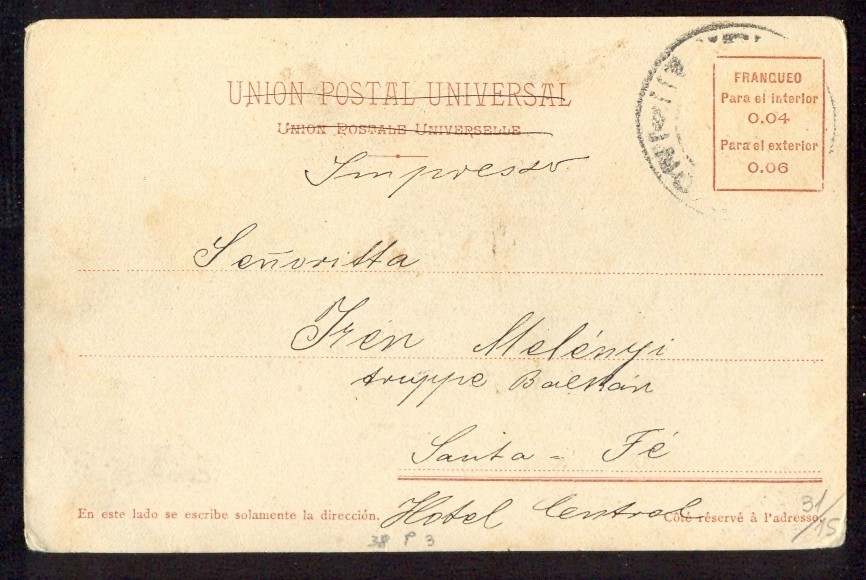 UNION POSTAL UNIVERSAL
UNION POSTALE UNIVERSELLE
FRANQUEO
Para el interior
0.04
Para el exterior
0.06
Impresso
Señoritta
Irén Melényi
truppe Balkán
Santa = Fé
En este lado se escribe solamente la dirección.
Hotel Central
Côté réservé à l'adresse.
31/15
38 P 3